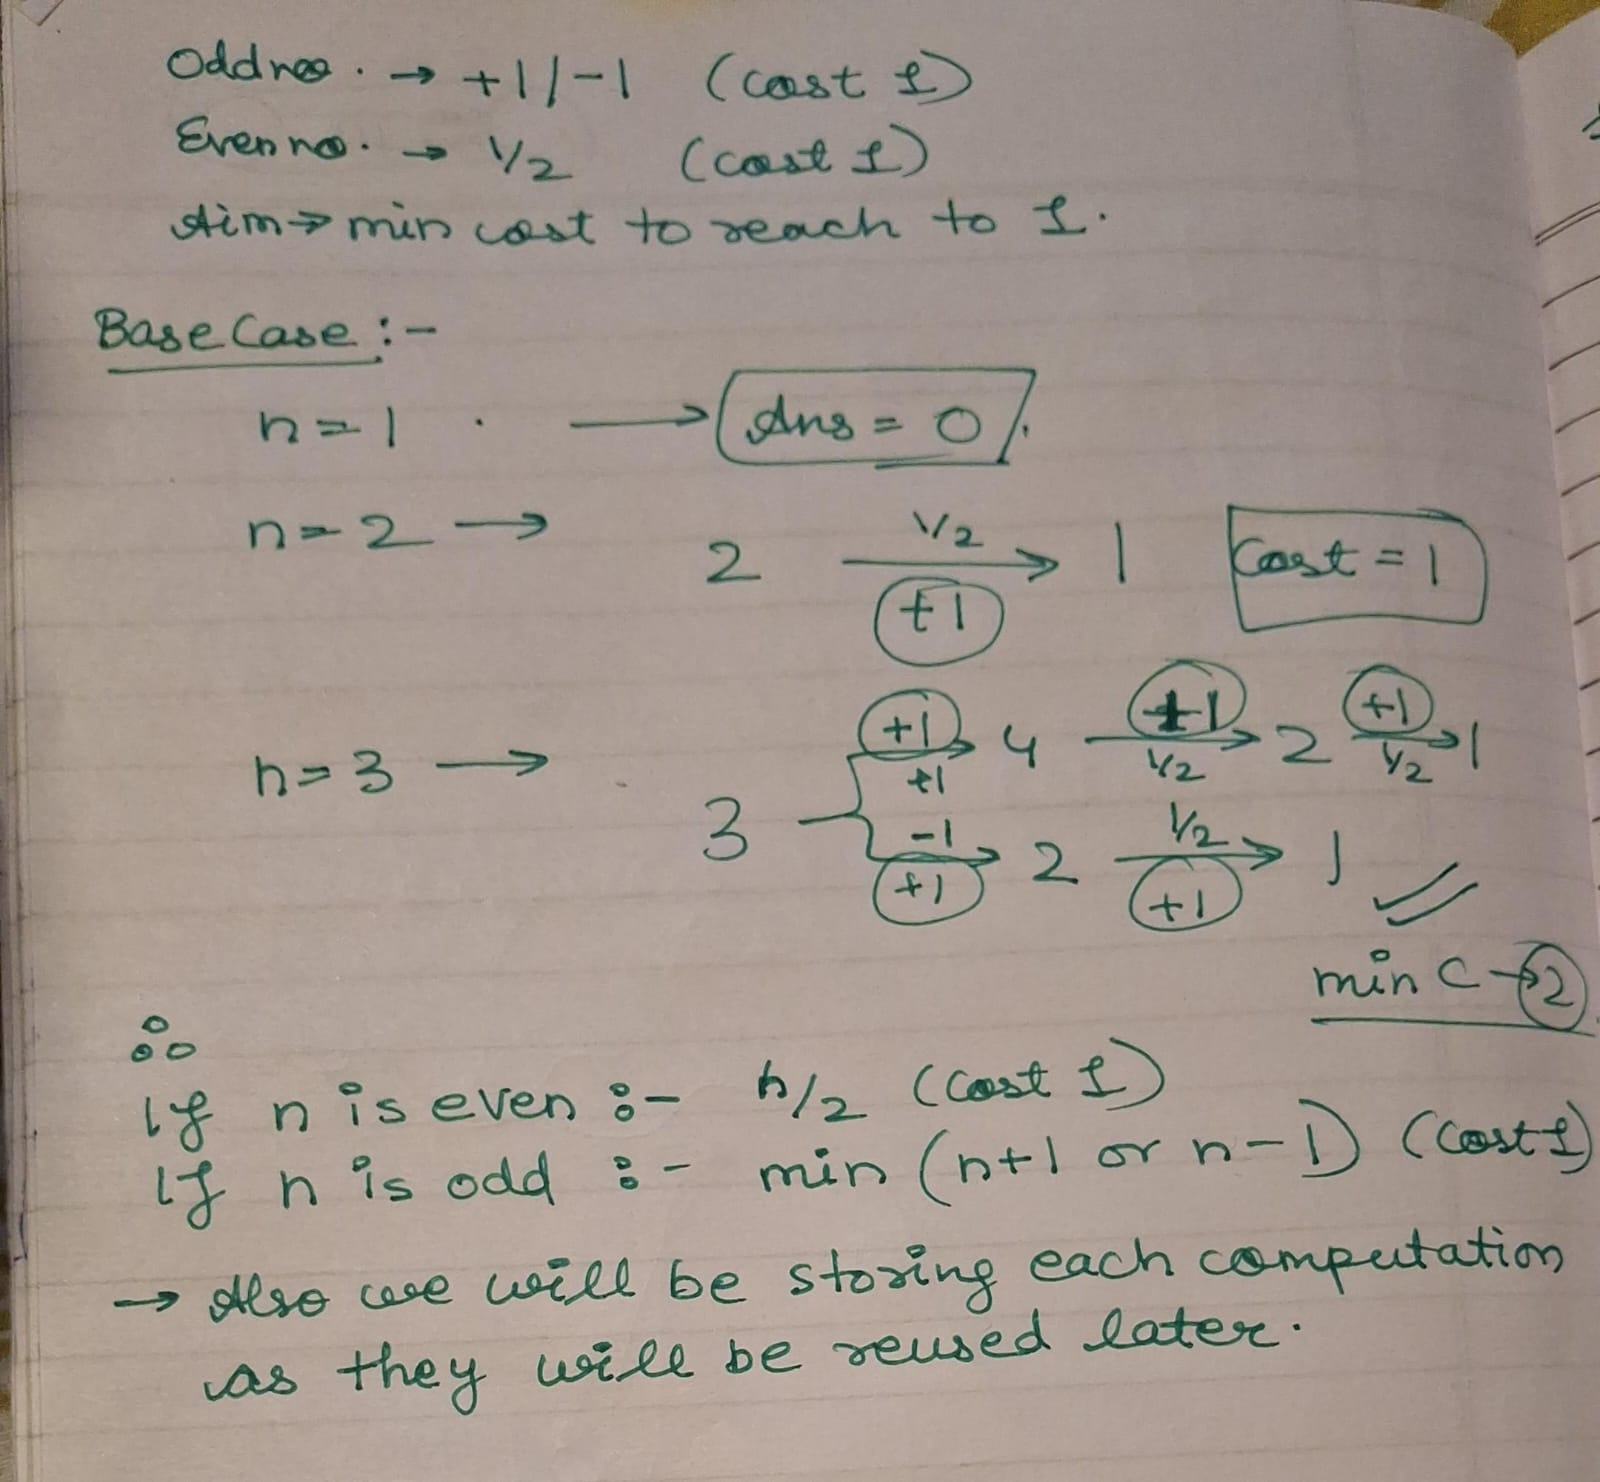 Odd nos. → +1/-1 (cost 1)
Even no. → 1/2 (cost 1)
Aim → min cost to reach to 1.
Base Case :-
n=1 . → Ans = 0
n=2 → 2 1/2 → 1 Cost = 1
+1
n=3 → 3
+1 +1 → 4 +1 1/2 → 2 +1 1/2 → 1
-1 +1 → 2 1/2 +1 → 1
min C → 2
∴
If n is even :- n/2 (cost 1)
If n is odd :- min (n+1 or n-1) (cost 1)
→ Also we will be storing each computation
as they will be reused later.